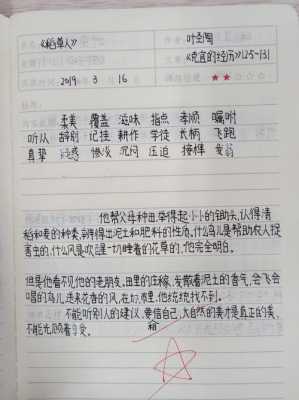 《稻草人》 叶圣陶
《克宜的经历》125-131
2019 3 16 ★★☆☆☆
柔美 覆盖 滋味 指点 孝顺 嘱咐
听从 辞别 记挂 耕作 学徒 长柄 飞跑
真挚 疑惑 惨淡 沉闷 压迫 接榫
他帮父母种田，举得起小小的锄头，认得清
稻和麦的种类，辨得出泥土和肥料的性质。什么鸟儿是帮助农人捉
害虫的，什么风是吹醒一切睡着的花草的，他完全明白。
但是他看不见他的老朋友。田里的庄稼，发散着泥土的香气，会飞会
唱的鸟儿，送来花香的风，在城市里，他统统找不到。
不能听别人的建议，要信自己，大自然的美才是真正的美，
不能光顾着享受。